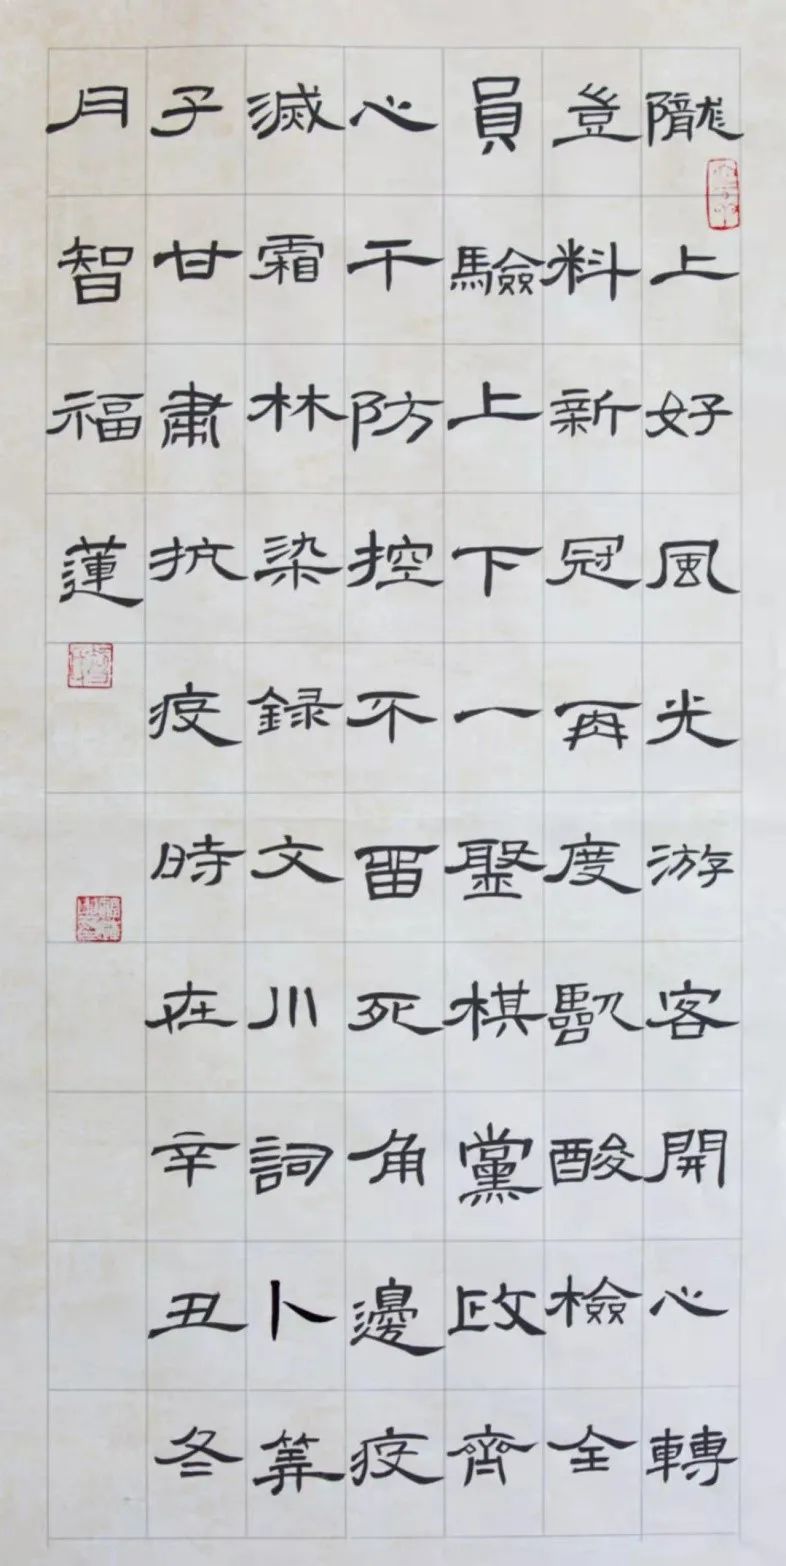 隴上好風光游客開心轉
豈料新冠再度酸檢全
員驗上下一盤棋黨政齊
心干防控不留死角邊疫
滅霜林染録文川詞卜筭
子甘肅抗疫時在辛丑冬
月智福蓮